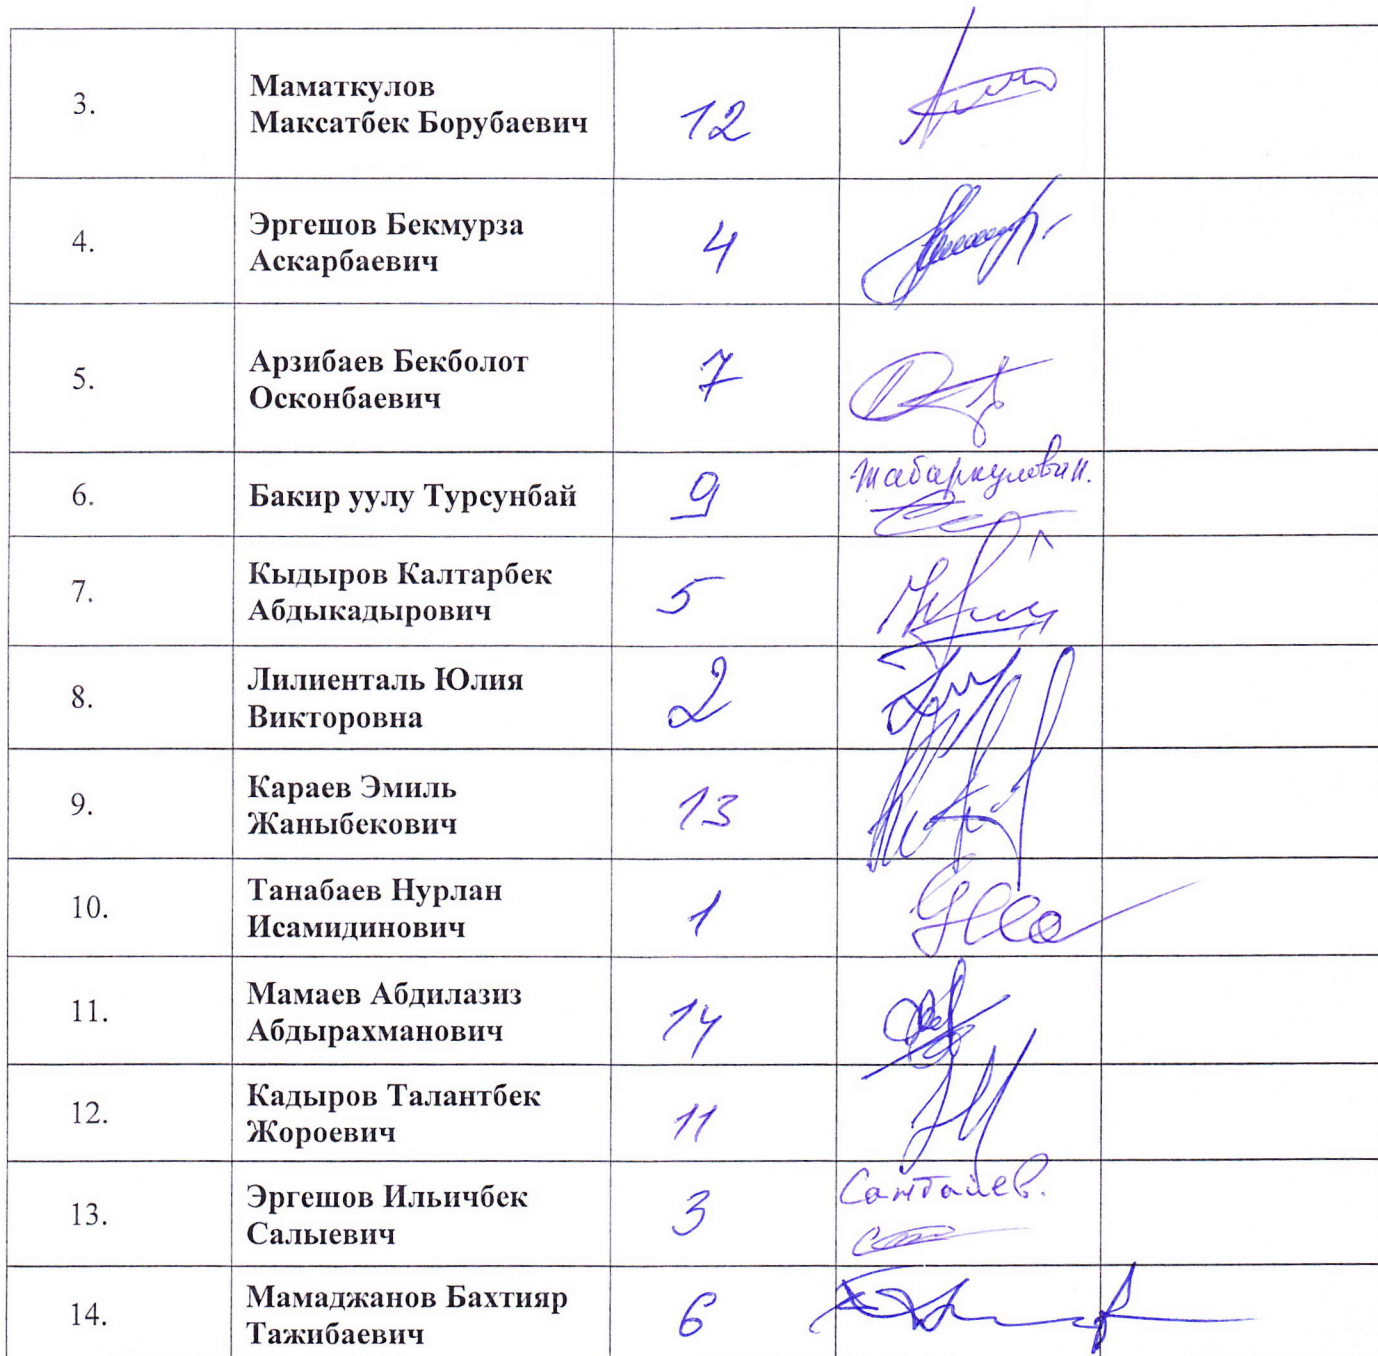 3.
Маматкулов
Максатбек Борубаевич
12
4.
Эргешов Бекмурза
Аскарбаевич
4
5.
Арзибаев Бекболот
Осконбаевич
7
6.
Бакир уулу Турсунбай
9
7.
Кыдыров Калтарбек
Абдыкадырович
5
8.
Лилиенталь Юлия
Викторовна
2
9.
Караев Эмиль
Жаныбекович
13
10.
Танабаев Нурлан
Исамидинович
1
11.
Мамаев Абдилазиз
Абдырахманович
14
12.
Кадыров Талантбек
Жороевич
11
13.
Эргешов Ильичбек
Салыевич
3
14.
Мамаджанов Бахтияр
Тажибаевич
6